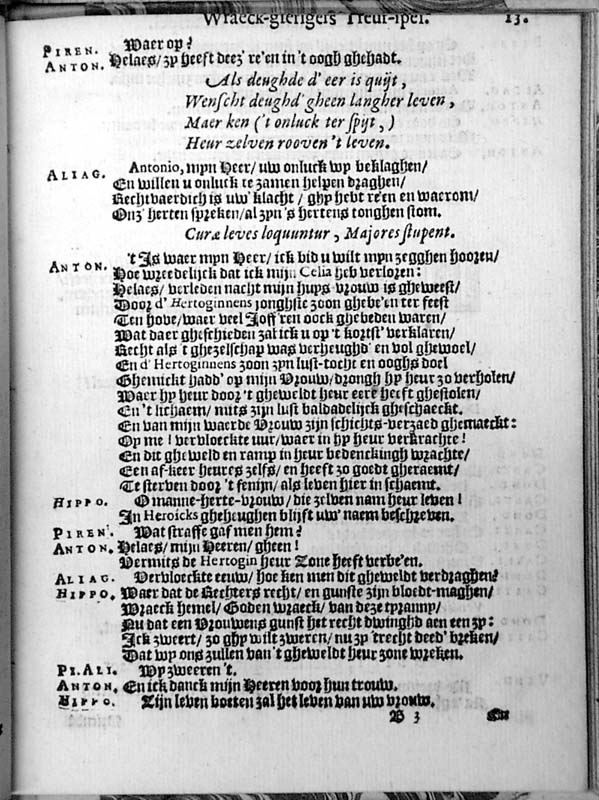 Wraeck-gierigers Treur-spel. 13.
PIREN. Waer op?
ANTON. Helaes/ zy heeft deez' re'en in 't oogh ghehadt.
Als deughde d' eer is quijt,
Wenscht deughd' gheen langher leven,
Maer ken ('t onluck ter spijt,)
Heur zelven rooven 't leven.
ALIAG. Antonio, mijn Heer/ uw onluck wy beklaghen/
En willen u onluck te zamen helpen draghen/
Rechtvaerdich is uw' klacht / ghy hebt re'en en waerom/
Onz' herten spreken/ al zyn 's hertens tonghen stom.
Curæ leves loquuntur, Majores stupent.
ANTON. 't Is waer mijn Heer/ ick bid u wilt mijn zegghen hooren/
Hoe wreedelijck dat ick mijn Celia heb verloren:
Helaes/ verleden nacht mijn hups vrouw is gheweest/
Door d' Hertoginnens jonghste zoon ghebe'en ter feest
Ten hove/ waer veel Joff'ren oock ghebeden waren/
Wat daer gheschieden zal ick u op 't kortst' verklaren/
Recht als 't ghezelschap was verheughd' en vol ghewoel/
En d' Hertoginnens zoon zyn lust-tocht en ooghs doel
Ghemickt hadd' op mijn Vrouw/ drongh hy heur zo verholen/
Waer hy heur door 't gheweldt heur eere heeft ghestolen/
En 't lichaem/ mits zijn lust baldadelijck gheschaeckt.
En van mijn waerde Vrouw zijn schichts-verzaed ghemaeckt:
Op me! vervloeckte uur/ waer in hy heur verkrachte!
En dit gheweld en ramp in heur bedenckingh wrachte/
Een af-keer heures zelfs/ en heeft zo goedt gheraemt/
Te sterven door 't fenijn/ als leven hier in schaemt.
HIPPO. O manne-herte-vrouw/ die zelven nam heur leven!
In Heroicks gheheughen blijft uw' naem beschreven.
PIREN. Wat straffe gaf men hem?
ANTON. Helaes/ mijn Heeren/ gheen!
Vermits de Hertogin heur Zone heeft verbe'en.
ALIAG. Vervloeckte eeuw/ hoe ken men dit gheweldt verdraghen?
HIPPO. Waer dat de Rechters recht/ en gunste zijn bloedt-maghen/
Wraeck hemel/ Goden wraeck/ van deze tyranny/
Nu dat een Vrouwens gunst het recht dwinghd aen een zy:
Ick zweert/ zo ghy wilt zweren/ nu zy 't recht deed' breken/
Dat wy ons zullen van 't gheweldt heur zone wreken.
PI.ALI. Wy zweeren 't.
ANTON. En ick danck mijn Heeren voor hun trouw.
HIPPO. Zijn leven boeten zal het leven van uw vrouw.
B 3